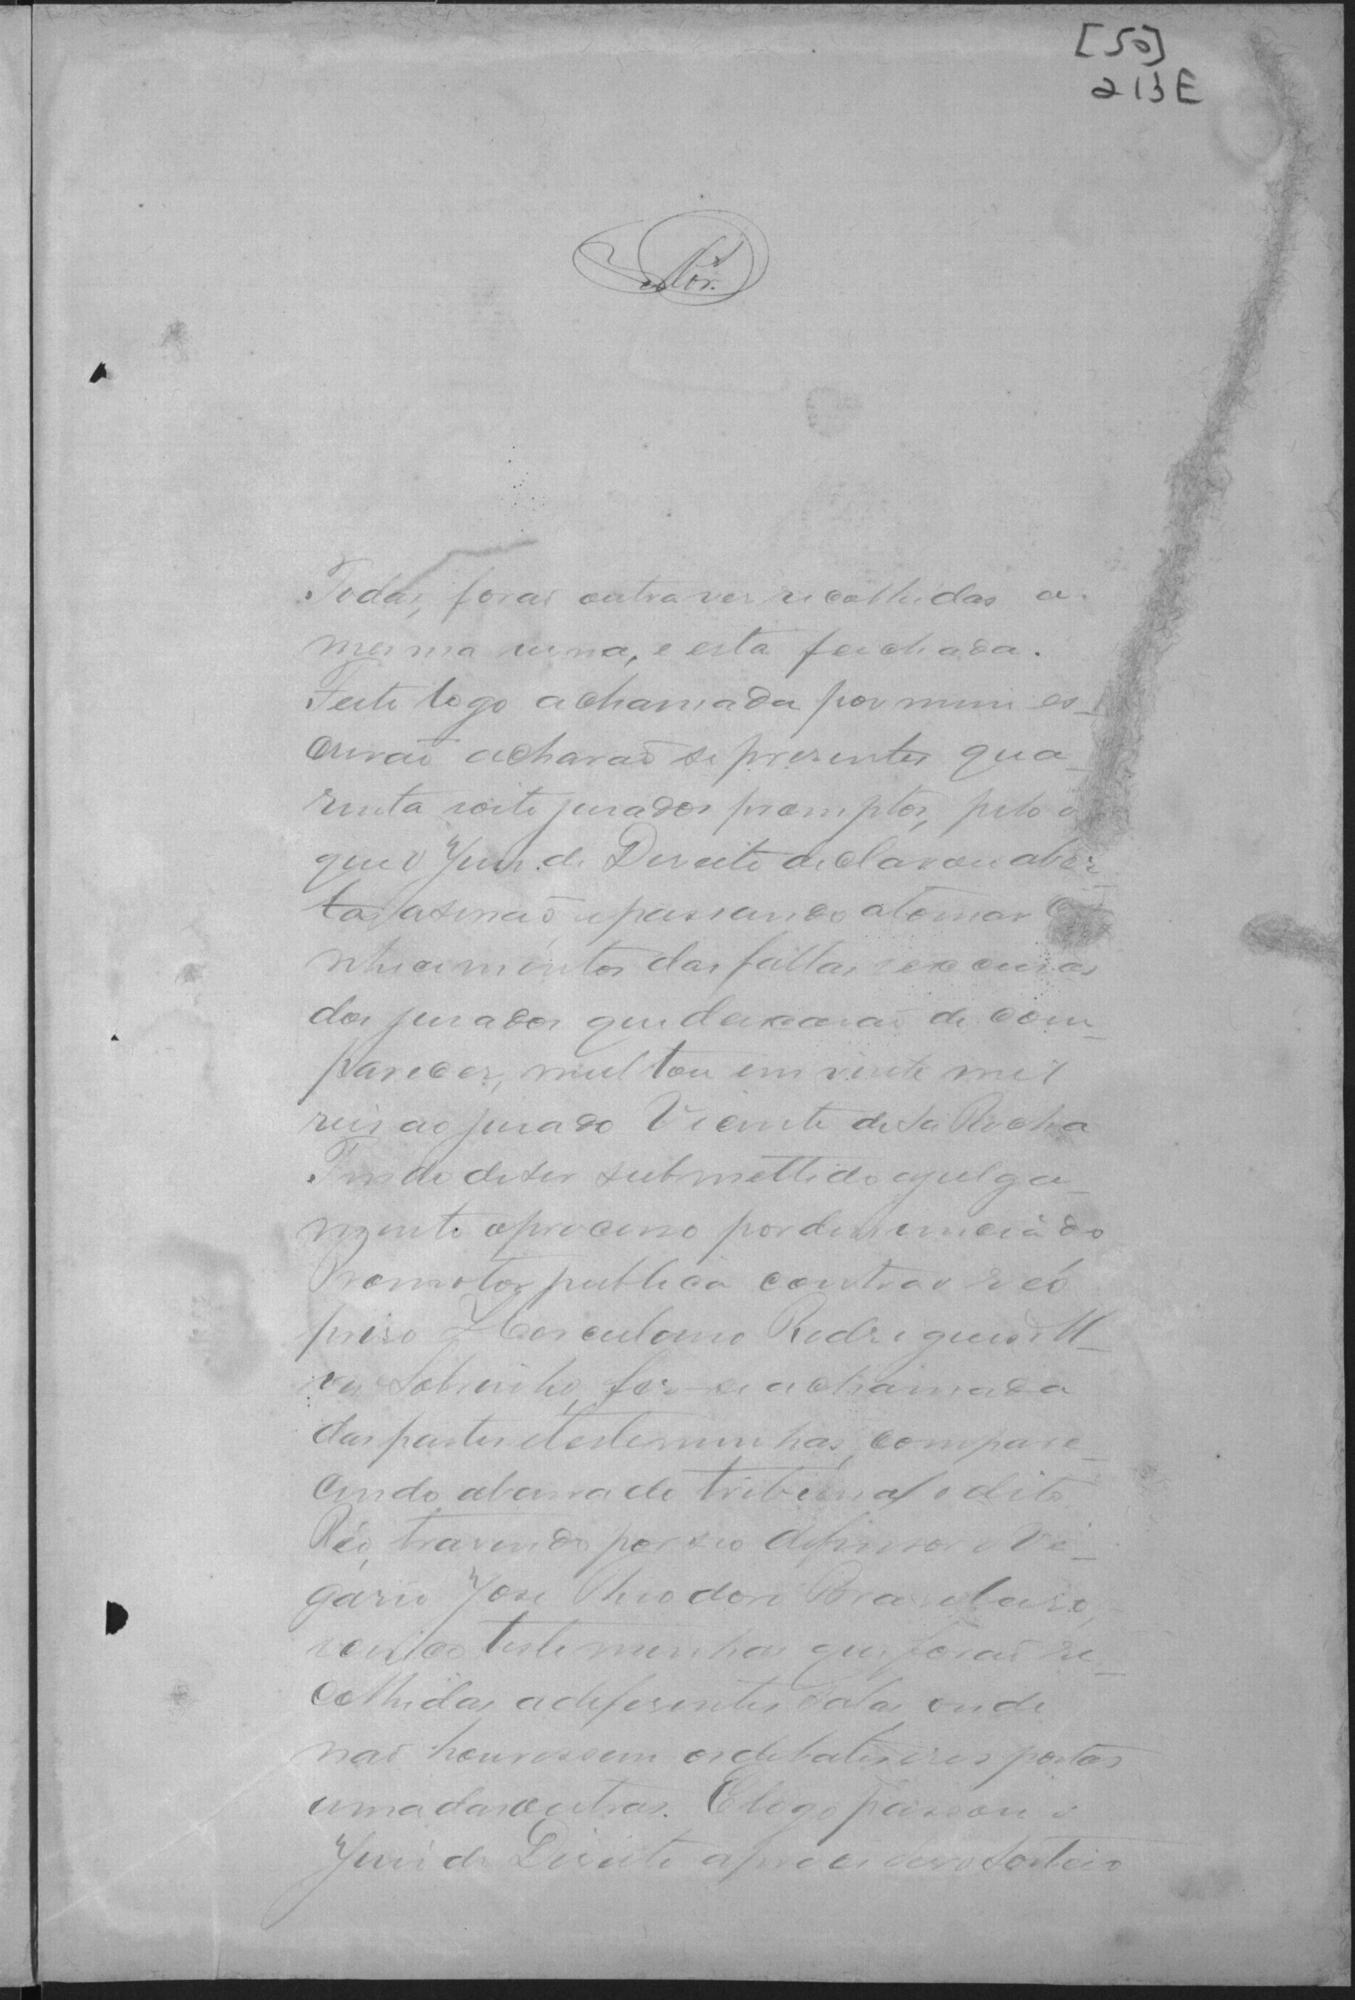 [50]
213E
Todas, forão outra vez recolhidas a
mesma urna, e esta feichada.
Feito logo a chamada por mim es_
crivão acharão se presentes qua_
renta e oito jurados promptos, pelo
que o Juiz de Direito declarou aber_
ta a sessão e passando a tomar co
nhecimentos das faltas e excusas
dos jurados que deixarão de com_
parecer, multou em vinte mil
reis ao jurado Vicente de Sá Rocha
Tendo de ser submettido a julga_
mento o processo por denuncia do
Promotor publica contra o reó
prezo Herculano Rodrigues
Sobrinho, fez-se a chamada
das partes e testemunhas, compare_
cendo a barra do tribunal o dito
Reó, trazendo por seo defensor o Vi_
gario José Theodoro Brasileiro,
testemunhas que forão re_
colhidas a diferentes salas onde
não houvessem os debates e res postas
uma das outras. E logo passou o
Juiz de Direito a proceder o sorteio